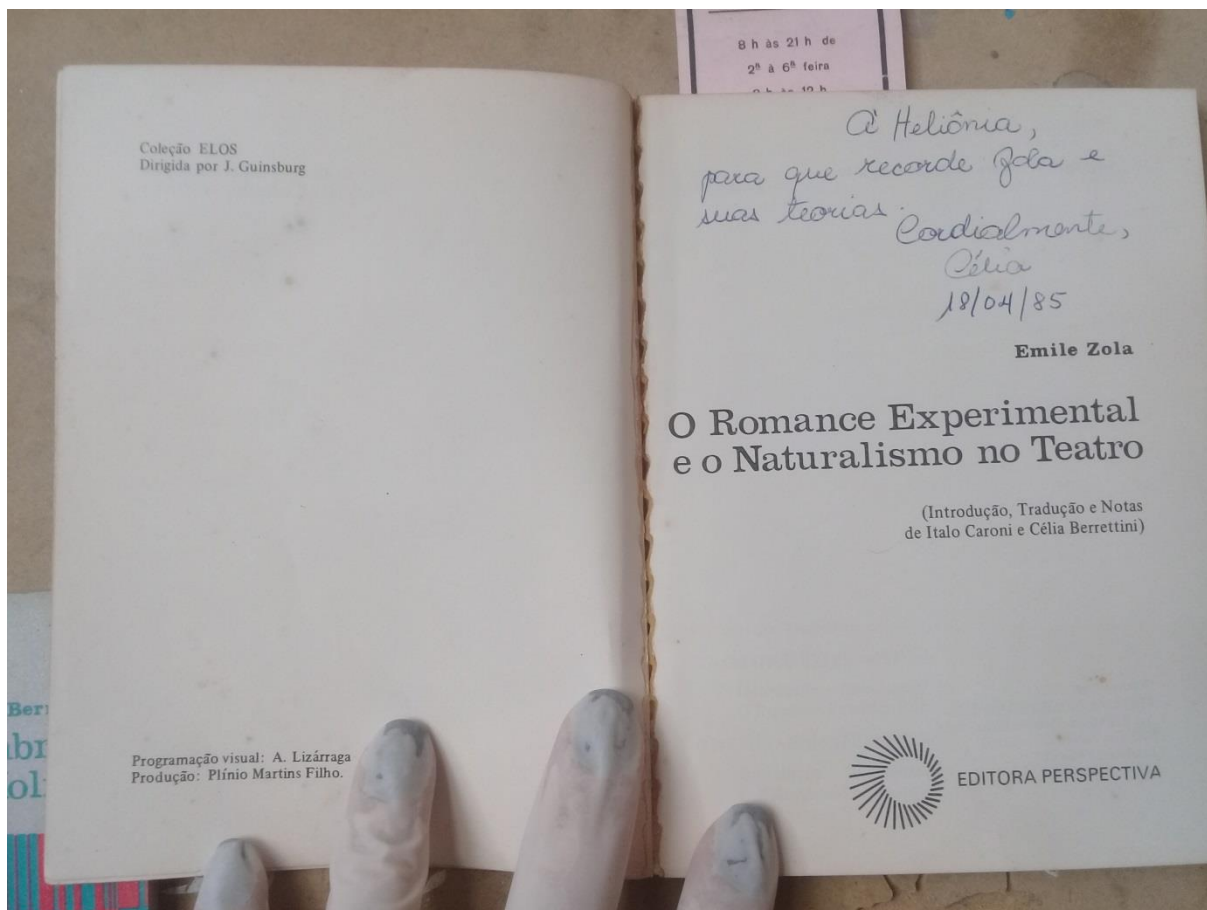 8 h às 21 h de
2ª à 6ª feira
Coleção ELOS
Dirigida por J. Guinsburg
Programação visual: A. Lizárraga
Produção: Plínio Martins Filho.
À Heliônia,
para que recorde Zola e
suas teorias.
Cordialmente,
Célia
18/04/85
Emile Zola
O Romance Experimental
e o Naturalismo no Teatro
(Introdução, Tradução e Notas
de Italo Caroni e Célia Berrettini)
EDITORA PERSPECTIVA